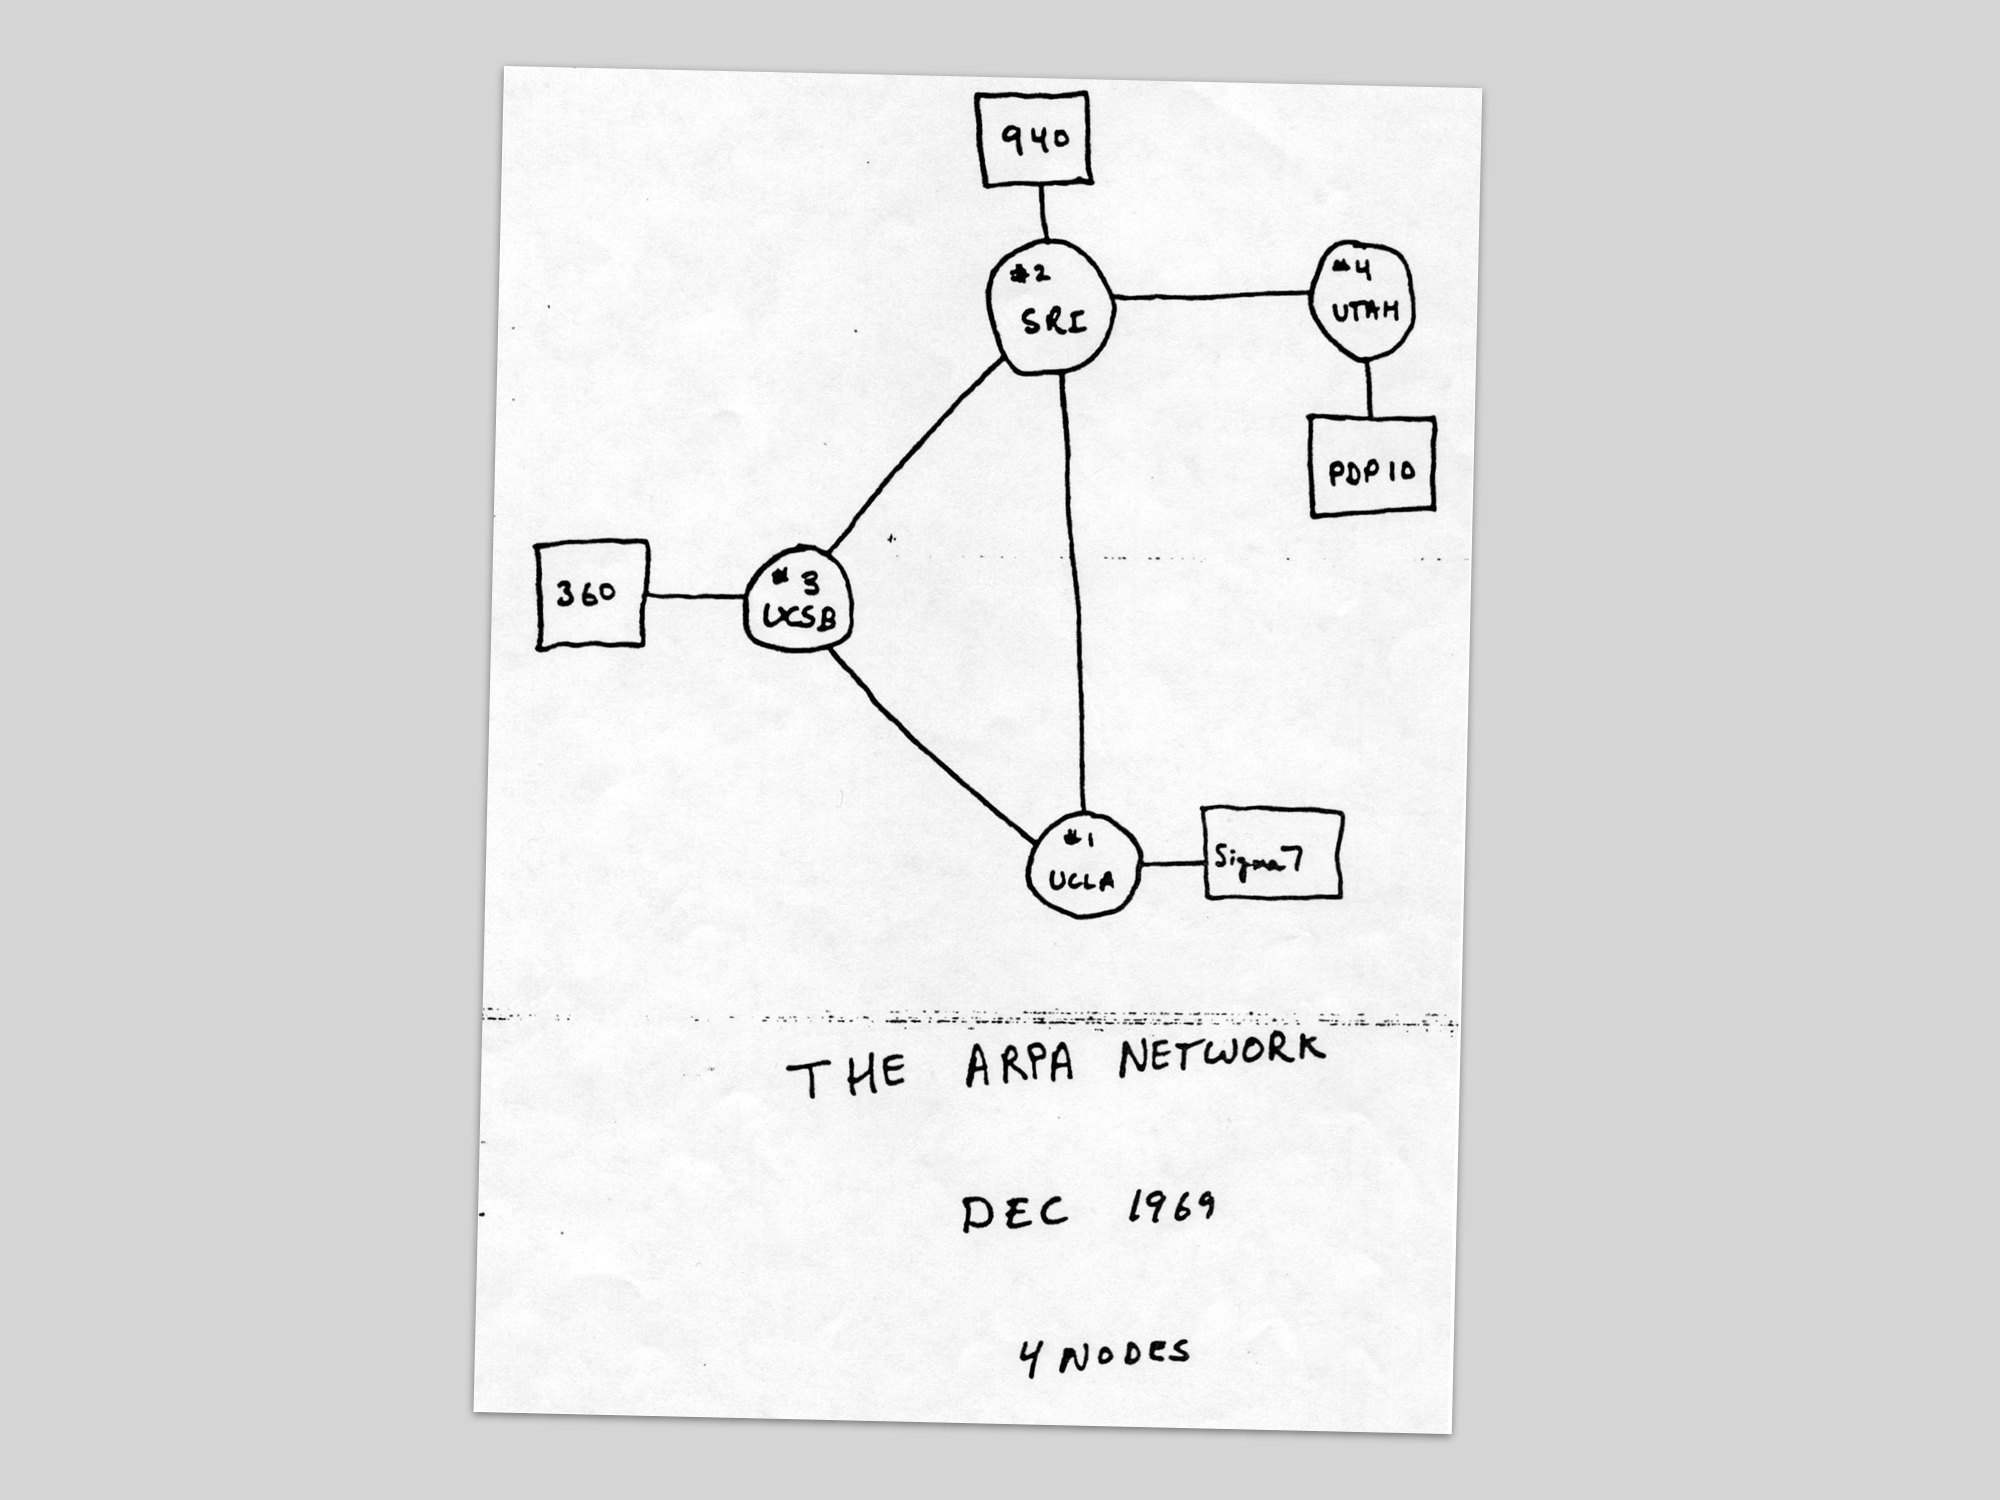 940
#2
SRI
#4
UTAH
PDP10
360
#3
UCSB
#1
UCLA
Sigma7
THE ARPA NETWORK
DEC 1969
4 NODES